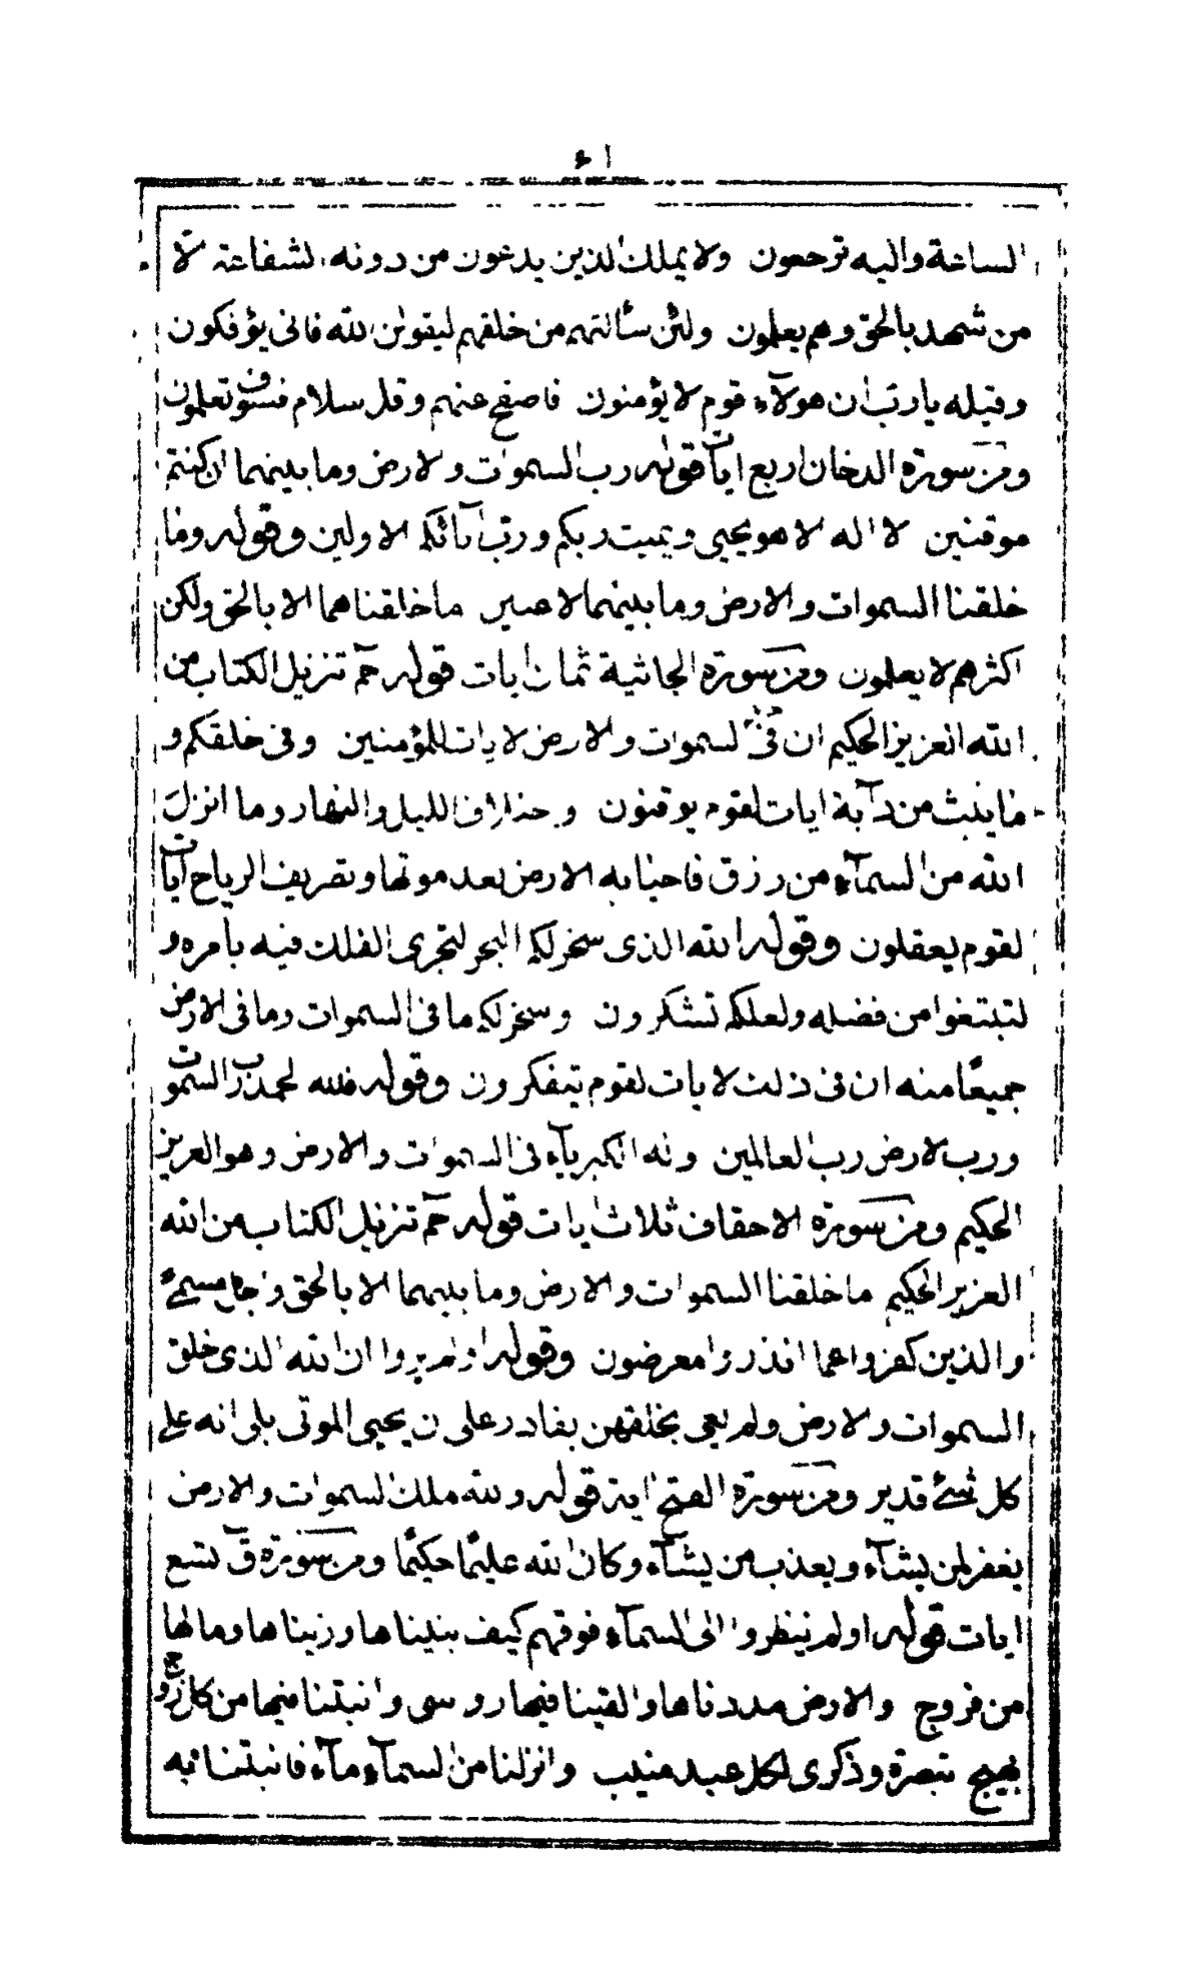 ١٤
الساعة واليه ترجعون ولا يملك الذين يدعون من دونه الشفاعة الا
من شهد بالحق وهم يعلمون ولئن سألتهم من خلقهم ليقولن الله فانى يؤفكون
وقيله يا رب ان هولآء قوم لا يؤمنون فاصفح عنهم وقل سلام فسوف تعلمون
ومن سورة الدخان اربع ايات قوله رب السموات والارض وما بينهما ان كنتم
موقنين لا اله الا هو يحيى ويميت ربكم ورب ابآئكم الاولين وقوله وما
خلقنا السموات والارض وما بينهما لاعبين ما خلقناهما الا بالحق ولكن
اكثرهم لا يعلمون ومن سورة الجاثية ثمان ايات قوله حم تنزيل الكتاب من
الله العزيز الحكيم ان فى السموات والارض لايات للمؤمنين وفى خلقكم و
ما يبث من دآبة ايات لقوم يوقنون واختلاف الليل والنهار وما انزل
الله من السمآء من رزق فاحيا به الارض بعد موتها وتصريف الرياح ايات
لقوم يعقلون وقوله الله الذى سخر لكم البحر لتجرى الفلك فيه بامره و
لتبتغوا من فضله ولعلكم تشكرون وسخر لكم ما فى السموات وما فى الارض
جميعًا منه ان فى ذلك لايات لقوم يتفكرون وقوله فلله الحمد رب السموت
ورب الارض رب العالمين وله الكبريآء فى السموات والارض وهو العزيز
الحكيم ومن سورة الاحقاف ثلاث ايات قوله حم تنزيل الكتاب من الله
العزيز الحكيم ما خلقنا السموات والارض وما بينهما الا بالحق واجل مسمى
والذين كفروا عما انذروا معرضون وقوله اولم يروا ان الله الذى خلق
السموات والارض ولم يعى بخلقهن بقادر على ان يحيى الموتى بلى انه على
كل شئ قدير ومن سورة الفتح اية قوله ولله ملك السموات والارض
يغفر لمن يشآء ويعذب من يشآء وكان الله عليمًا حكيمًا ومن سورة ق تسع
ايات قوله اولم ينظروا الى السمآء فوقهم كيف بنيناها وزيناها وما لها
من فروج والارض مددناها والقينا فيها رواسى وانبتنا فيها من كل زوج
بهيج تبصرة وذكرى لكل عبد منيب وانزلنا من السمآء مآء فانبتنا به